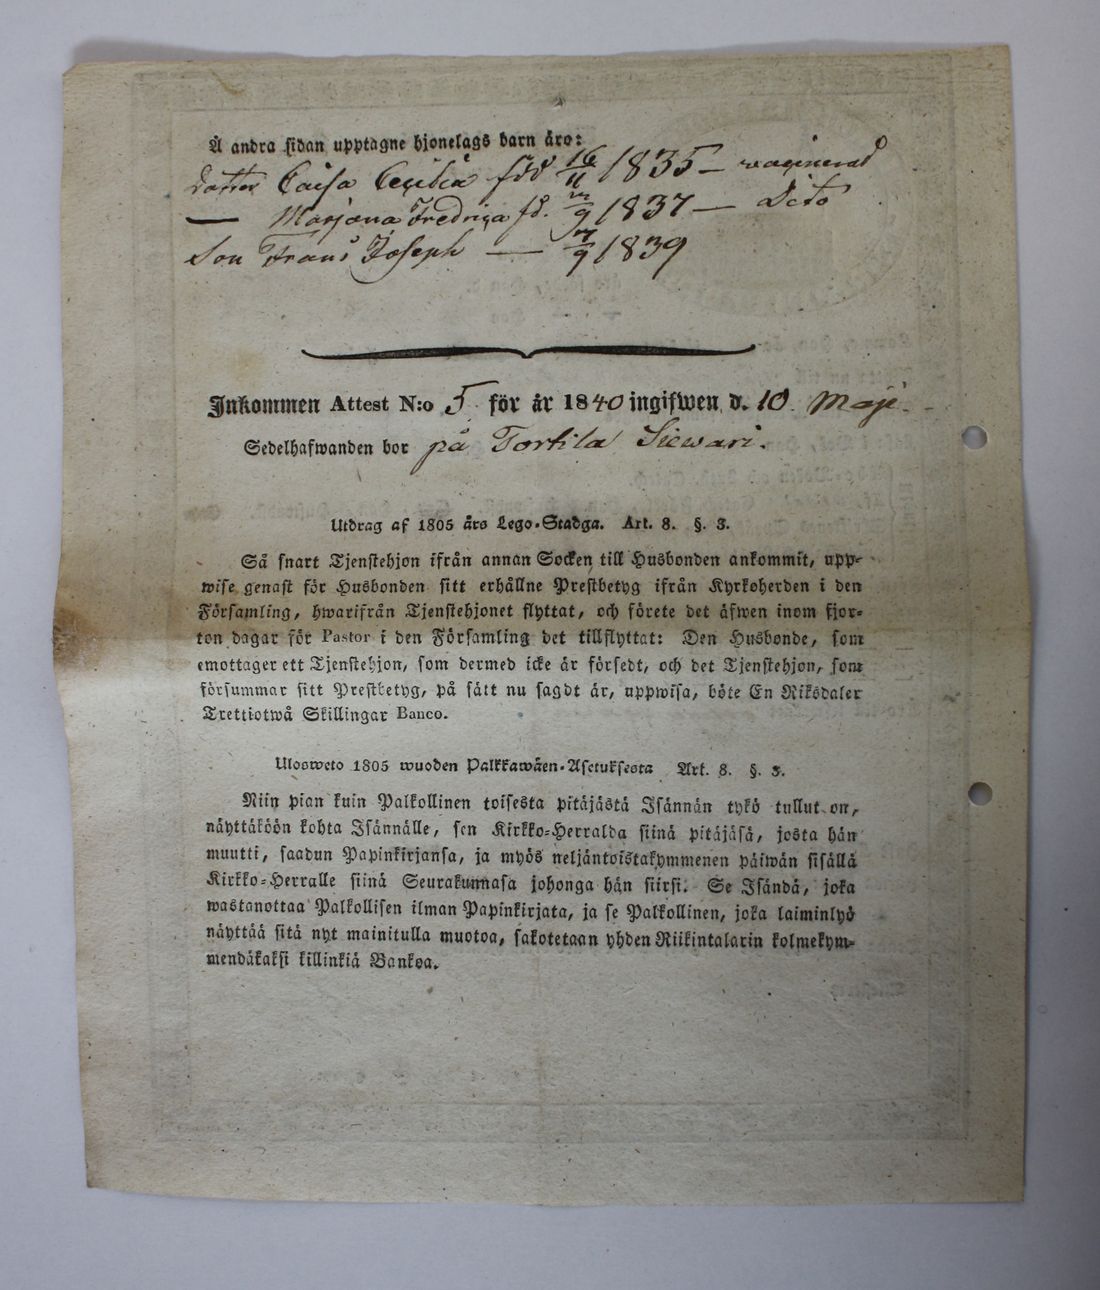 Å andra sidan upptagne hjonelags barn äro:
Dotter Caisa Cecilia född 16/11 1835 — vaccinerad
— Marjana Fredrica fd. /9 1837 — Dito
Son Frans Joseph — 7/9 1839
Inkommen Attest N:o 5 för år 1840 ingifwen d. 10. Maji.
Sedelhafwanden bor på Tortila Siewari.
Utdrag af 1805 års Lego-Stadga. Art. 8. §. 3.
Så snart Tjenstehjon ifrån annan Socken till Husbonden ankommit, upp-
wise genast för Husbonden sitt erhållne Prestbetyg ifrån Kyrkoherden i den
Församling, hwarifrån Tjenstehjonet flyttat, och förete det äfwen inom fjor-
ton dagar för Pastor i den Församling det tillflyttat: Den Husbonde, som
emottager ett Tjenstehjon, som dermed icke är försedt, och det Tjenstehjon, som
försummar sitt Prestbetyg, på sätt nu sagdt är, uppwisa, böte En Riksdaler
Trettiotwå Skillingar Banco.
Ulosweto 1805 wuoden Palkkawäen-Asetuksesta Art. 8. §. 3.
Niin pian kuin Palkollinen toisesta pitäjästä Isännän tykö tullut on,
näyttäköön kohta Isännälle, sen Kirkko-Herralda siinä pitäjäsä, josta hän
muutti, saadun Papinkirjansa, ja myös neljäntoistakymmenen päiwän sisällä
Kirkko-Herralle siinä Seurakunnasa johonga hän siirsi. Se Isändä, joka
wastanottaa Palkollisen ilman Papinkirjata, ja se Palkollinen, joka laiminlyö
näyttää sitä nyt mainitulla muotoa, sakotetaan yhden Riikintalarin kolmekym-
mendäkaksi killinkiä Bankoa.